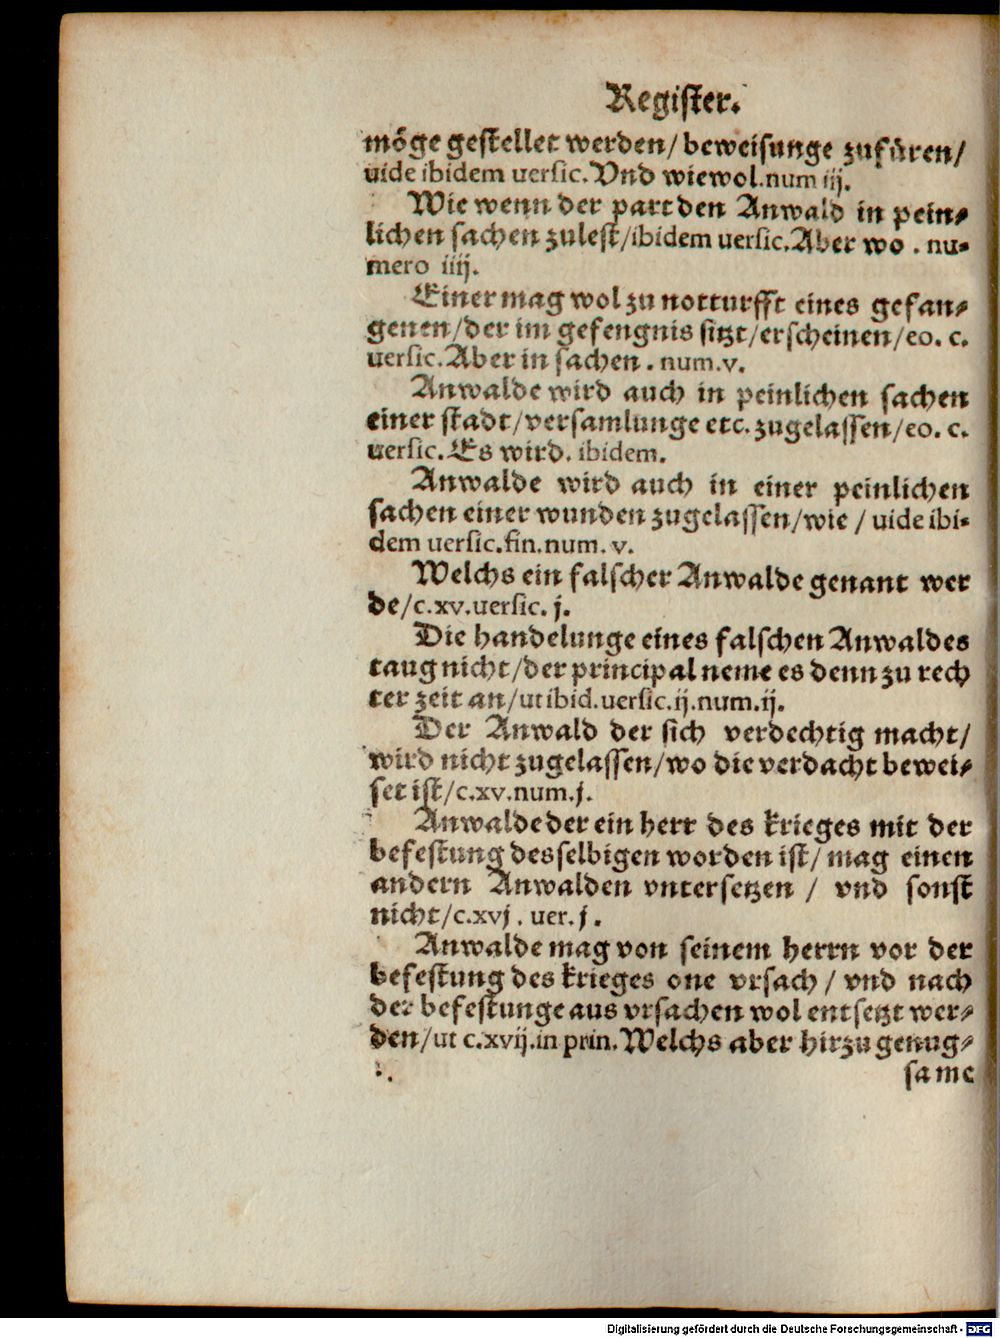 Register.
möge gestellet werden/ beweisunge zufüren/
uide ibidem uersic. Vnd wiewol. num iij.
Wie wenn der part den Anwald in pein⸗
lichen sachen zulest/ibidem uersic. Aber wo . nu⸗
mero iiij.
Einer mag wol zu notturfft eines gefan⸗
genen/der im gefengnis sitzt/erscheinen/eo. c.
uersic. Aber in sachen . num. v.
Anwalde wird auch in peinlichen sachen
einer stadt/versamlunge etc. zugelassen/eo. c.
uersic. Es wird. ibidem.
Anwalde wird auch in einer peinlichen
sachen einer wunden zugelassen/wie / uide ibi⸗
dem uersic. fin. num. v.
Welchs ein falscher Anwalde genant wer
de/c. xv. uersic. j.
Die handelunge eines falschen Anwaldes
taug nicht/der principal neme es denn zu rech
ter zeit an/ut ibid. uersic. ij. num. ij.
Der Anwald der sich verdechtig macht/
wird nicht zugelassen/wo die verdacht bewei⸗
set ist/c. xv. num. j.
Anwalde der ein herr des krieges mit der
befestung desselbigen worden ist/ mag einen
andern Anwalden vntersetzen / vnd sonst
nicht/c. xvj . uer. j .
Anwalde mag von seinem herrn vor der
befestung des krieges one vrsach / vnd nach
der befestunge aus vrsachen wol entsetzt wer⸗
den/ut c. xvij. in prin. Welchs aber hirzu genug⸗
same
Digitalisierung gefördert durch die Deutsche Forschungsgemeinschaft - DFG